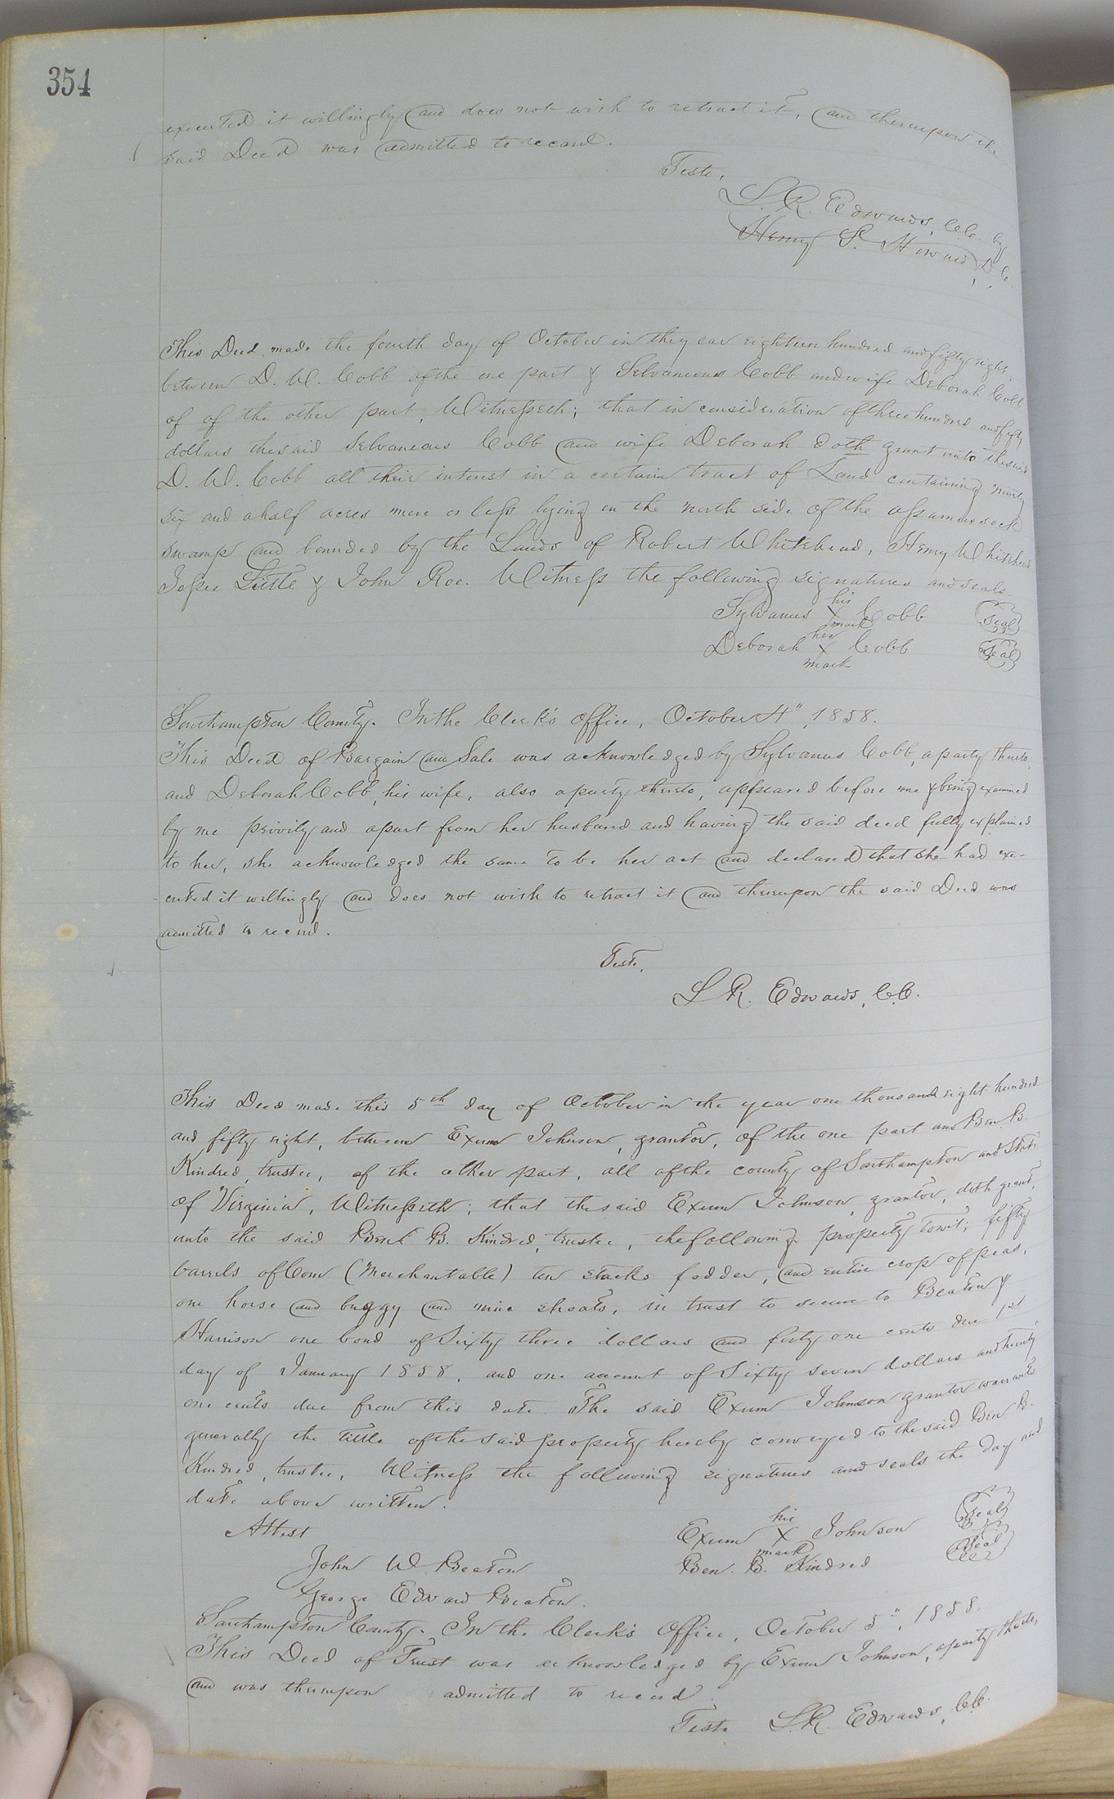 354
executed it willingly and does not wish to retract it, and thereupon the
said Deed was admitted to record.
Teste,
L. R. Edwards, C.C. by
Henry S. Howard, D.C.
This Deed made the fourth day of October in the year eighteen hundred and fifty eight,
between D. W. Cobb of the one part & Selvaneous Cobb and wife Deborah Cobb
of of the other part, Witnesseth; that in consideration of three hundred and fifty
dollars the said Selvaneous Cobb and wife Deborah doth grant unto the said
D. W. Cobb all their interest in a certain tract of Land containing ninety
six and a half acres more or less lying on the north side of the assamoosock
swamp and bounded by the Lands of Robert Whitehead, Henry Whitehead
Jesse Little & John Roe. Witness the following signatures and seals.
his
Sylvanus X Cobb Seal
mark
her
Deborah X Cobb Seal
mark
Southampton County. In the Clerk's office, October 4", 1858.
This Deed of Bargain and Sale was acknowledged by Sylvanus Cobb, a party thereto,
and Deborah Cobb, his wife, also a party thereto, appeared before me & being examined
by me privily and apart from her husband and having the said deed fully explained
to her, she acknowledged the same to be her act and declared that she had exe-
cuted it willingly and does not wish to retract it and thereupon the said Deed was
admitted to record.
Teste,
L. R. Edwards, C.C.
This Deed made this 5th day of October in the year one thousand eight hundred
and fifty eight, between Exum Johnson, grantor, of the one part and Ben B.
Kindred, trustee, of the other part, all of the county of Southampton and State
of Virginia, Witnesseth; that the said Exum Johnson, grantor, doth grant,
unto the said Ben B. Kindred, trustee, the following property towit; fifty
barrels of Corn (Merchantable) ten stacks fodder, and entire crop of peas,
one horse and buggy and nine shoats, in trust to secure to Beaton &
Harrison one bond of Sixty three dollars and forty one cents due 1st
day of January 1858, and one account of Sixty seven dollars and twenty
one cents due from this date The said Exum Johnson grantor warrants
generally the title of the said property hereby conveyed to the said Ben B.
Kindred, trustee, Witness the following signatures and seals the day and
date above written.
Attest
his
Exum X Johnson Seal
mark
John W Beaton
Ben. B. Kindred Seal
George Edward Beaton.
Southampton County. In the Clerk's Office, October 5", 1858.
This Deed of Trust was acknowledged by Exum Johnson, a party thereto,
and was thereupon admitted to record
Teste L.R. Edwards, C.C.